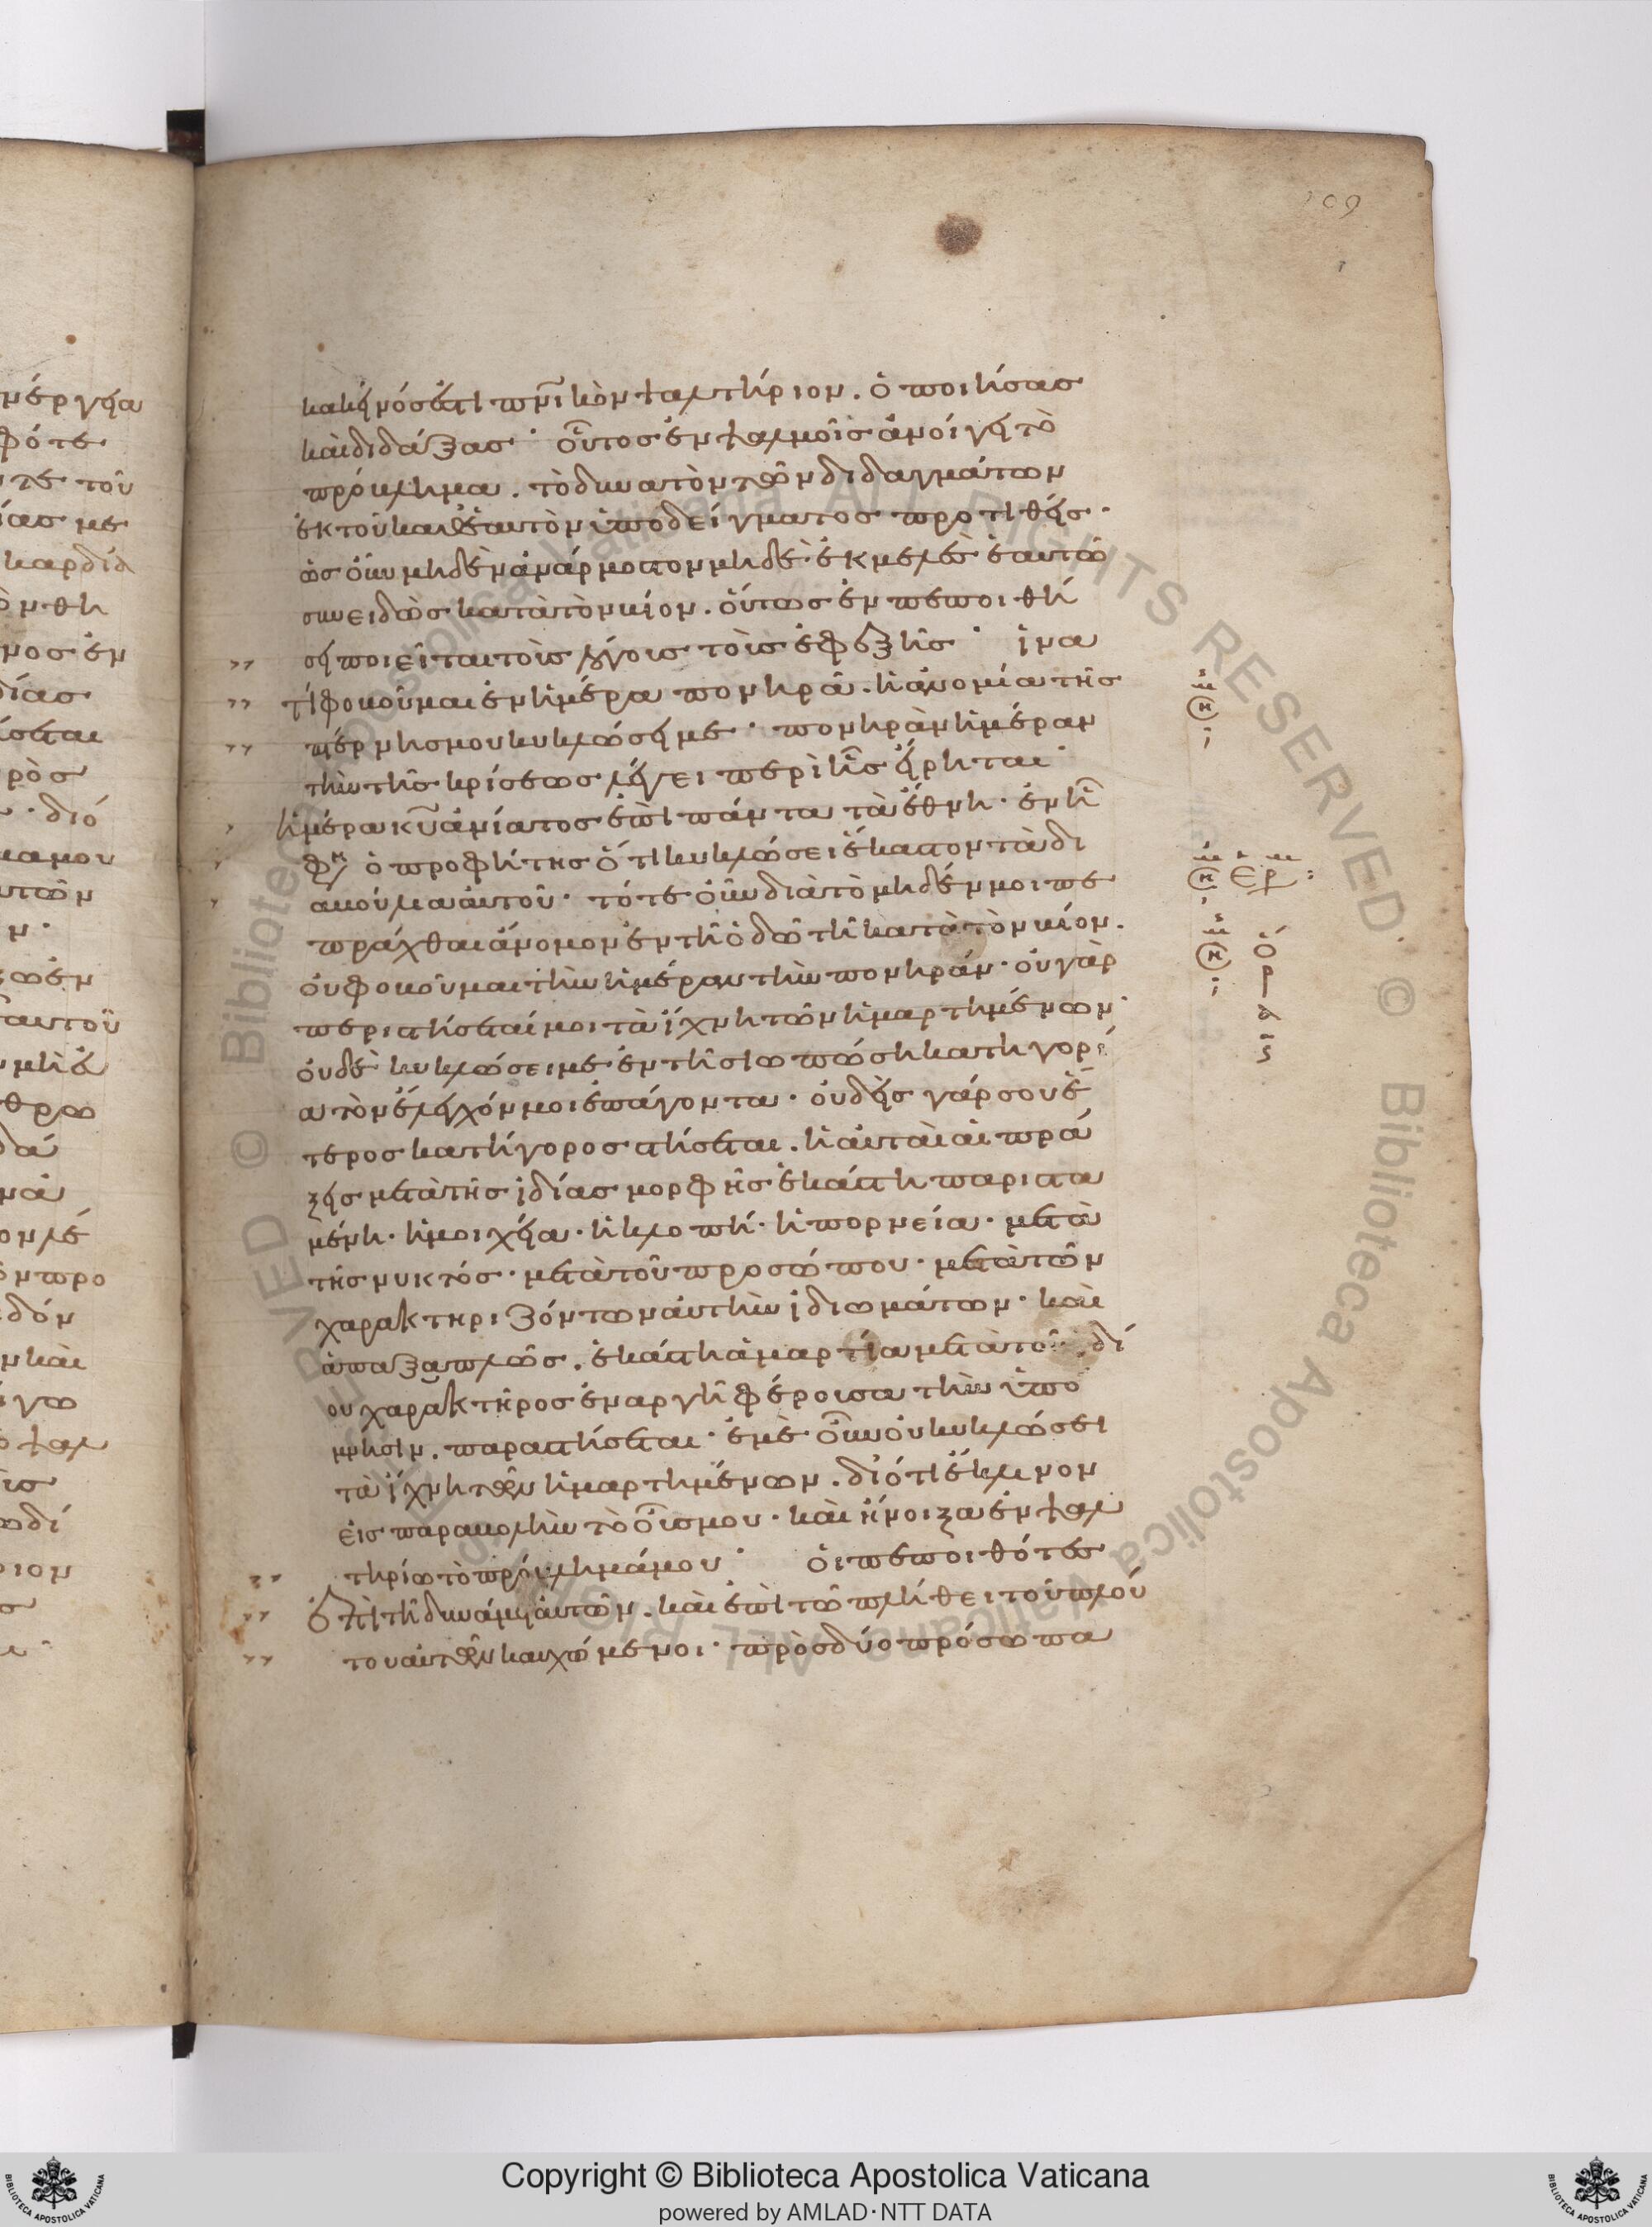 109
κακεῖνός ἐστι πνικὸν ψαλτήριον. ὁ ποιήσας
καὶ διδάξας· οὗτος ἐν ψαλμοῖς ἀνοίγει τὸ
πρόβλημα. τὸ δυνατὸν τῶν διδαγμάτων
ἐκ τοῦ καθ ἑαυτὸν ὑποδείγματος προτιθείς·
ὡς οὖν μηδὲν ἀνάρμοστον μηδὲ ἐκμελὲς ἑαυτῶ
συνειδὼς κατὰ τὸν βίον. οὕτως ἐν πεποιθή
σει ποιεῖται τοῖς λόγοις τοῖς ἐφεξῆς· ἵνα
τί φοβοῦμαι ἐν ἡμέρα πονηρᾶ. ἡ ἀνομία τῆς
πτέρνης μου κυκλώσει με· πονηρὰν ἡμέραν
τὴν τῆς κρίσεως λέγει περὶ ἧς εἴρηται·
ἡμέρα κυ ἀνίατος ἐπὶ πάντα τὰ ἔθνη· ἐν ἧ
φη ὁ προφήτης ὅτι κυκλώσει ἕκαστον τὰ δι
αβούλια αὐτοῦ· τότε οὖν διὰ τὸ μηδέν μοι πε
πράχθαι ἄνομον ἐν τῆ ὁδῶ τῆ κατὰ τὸν βίον.
οὐ φοβοῦμαι τὴν ἡμέραν τὴν πονηράν· οὐ γὰρ
περιστήσεταί μοι τὰ ἴχνη τῶν ἡμαρτημένων·
οὐδὲ κυκλώσει με ἐν τῆ σιωπώση κατηγορί
α τὸν ἔλεγχόν μοι ἐπάγοντα· οὐδεὶς γάρ σου ἕ
τερος κατήγορος στήσεται. ἢ αὐταὶ αἱ πρά
ξεις μετὰ τῆς ἰδίας μορφῆς ἑκάστη παριστα
μένη· ἡ μοιχεία· ἡ κλοπή· ἡ πορνεία· μετὰ
τῆς νυκτός· μετὰ τοῦ προσώπου· μετὰ τῶν
χαρακτηριζόντων αὐτὴν ἰδιωμάτων· καὶ
ἁπαξαπλῶς. ἑκάστη ἁμαρτία μετὰ τοῦ ἰδί
ου χαρακτῆρος ἐναργῆ φέρουσα τὴν ὑπό
μνησιν. παραστήσεται· ἐμὲ οὖν οὐ κυκλώσει
τὰ ἴχνη τῶν ἡμαρτημένων. διότι ἔκλινον
εἰς παραβολὴν τὸ οὖς μου· καὶ ἤνοιξα ἐν ψαλ
τηρίω τὸ πρόβλημά μου· οἱ πεποιθότες
ἐπὶ τῆ δυνάμει αὐτῶν. καὶ ἐπὶ τῶ πλήθει τοῦ πλού
του αὐτῶν καυχώμενοι· πρὸς δύο πρόσωπα
Copyright © Biblioteca Apostolica Vaticana
powered by AMLAD·NTT DATA